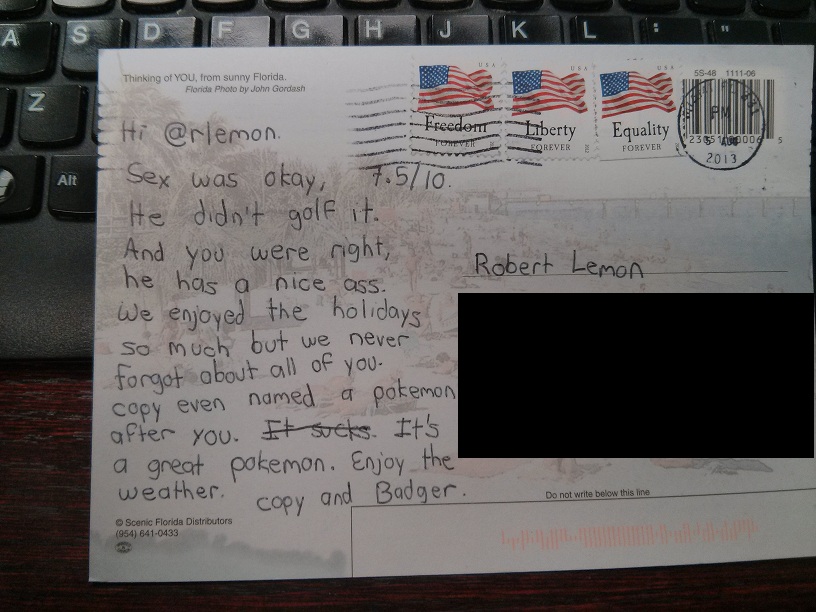 A S D F G H J K L : "
Z
Alt
Thinking of YOU, from sunny Florida.
Florida Photo by John Gordash
USA
Freedom
FOREVER
USA
Liberty
FOREVER
USA
Equality
FOREVER
5S-48 1111-06
PM
2013
5
Hi @rlemon.
Sex was okay, 7.5/10.
He didn't golf it.
And you were right,
he has a nice ass.
We enjoyed the holidays
so much but we never
forgot about all of you.
copy even named a pokemon
after you. It sucks. It's
a great pokemon. Enjoy the
weather. copy and Badger.
Robert Lemon
Do not write below this line
© Scenic Florida Distributors
(954) 641-0433